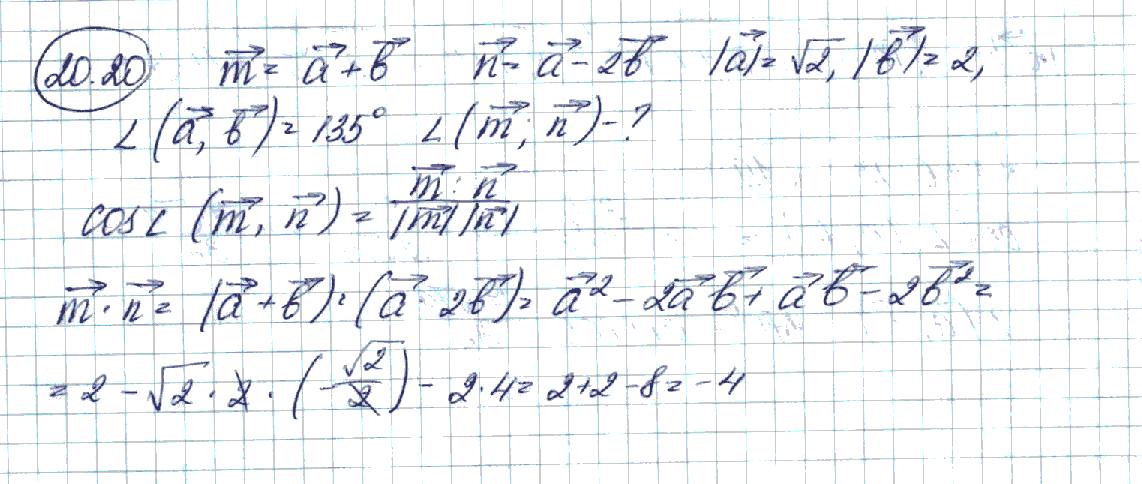 20.20 m⃗ = a⃗ + b⃗ n⃗ = a⃗ - 2b⃗ |a⃗| = √2, |b⃗| = 2,
∠(a⃗, b⃗) = 135° ∠(m⃗; n⃗) - ?
cos∠(m⃗, n⃗) = (m⃗ · n⃗)/(|m⃗| |n⃗|)
m⃗ · n⃗ = (a⃗ + b⃗) · (a⃗ 2b⃗) = a⃗² - 2a⃗ b⃗ + a⃗ b⃗ - 2b⃗² =
= 2 - √2 · 2 · (-√2/2) - 2 · 4 = 2 + 2 - 8 = -4